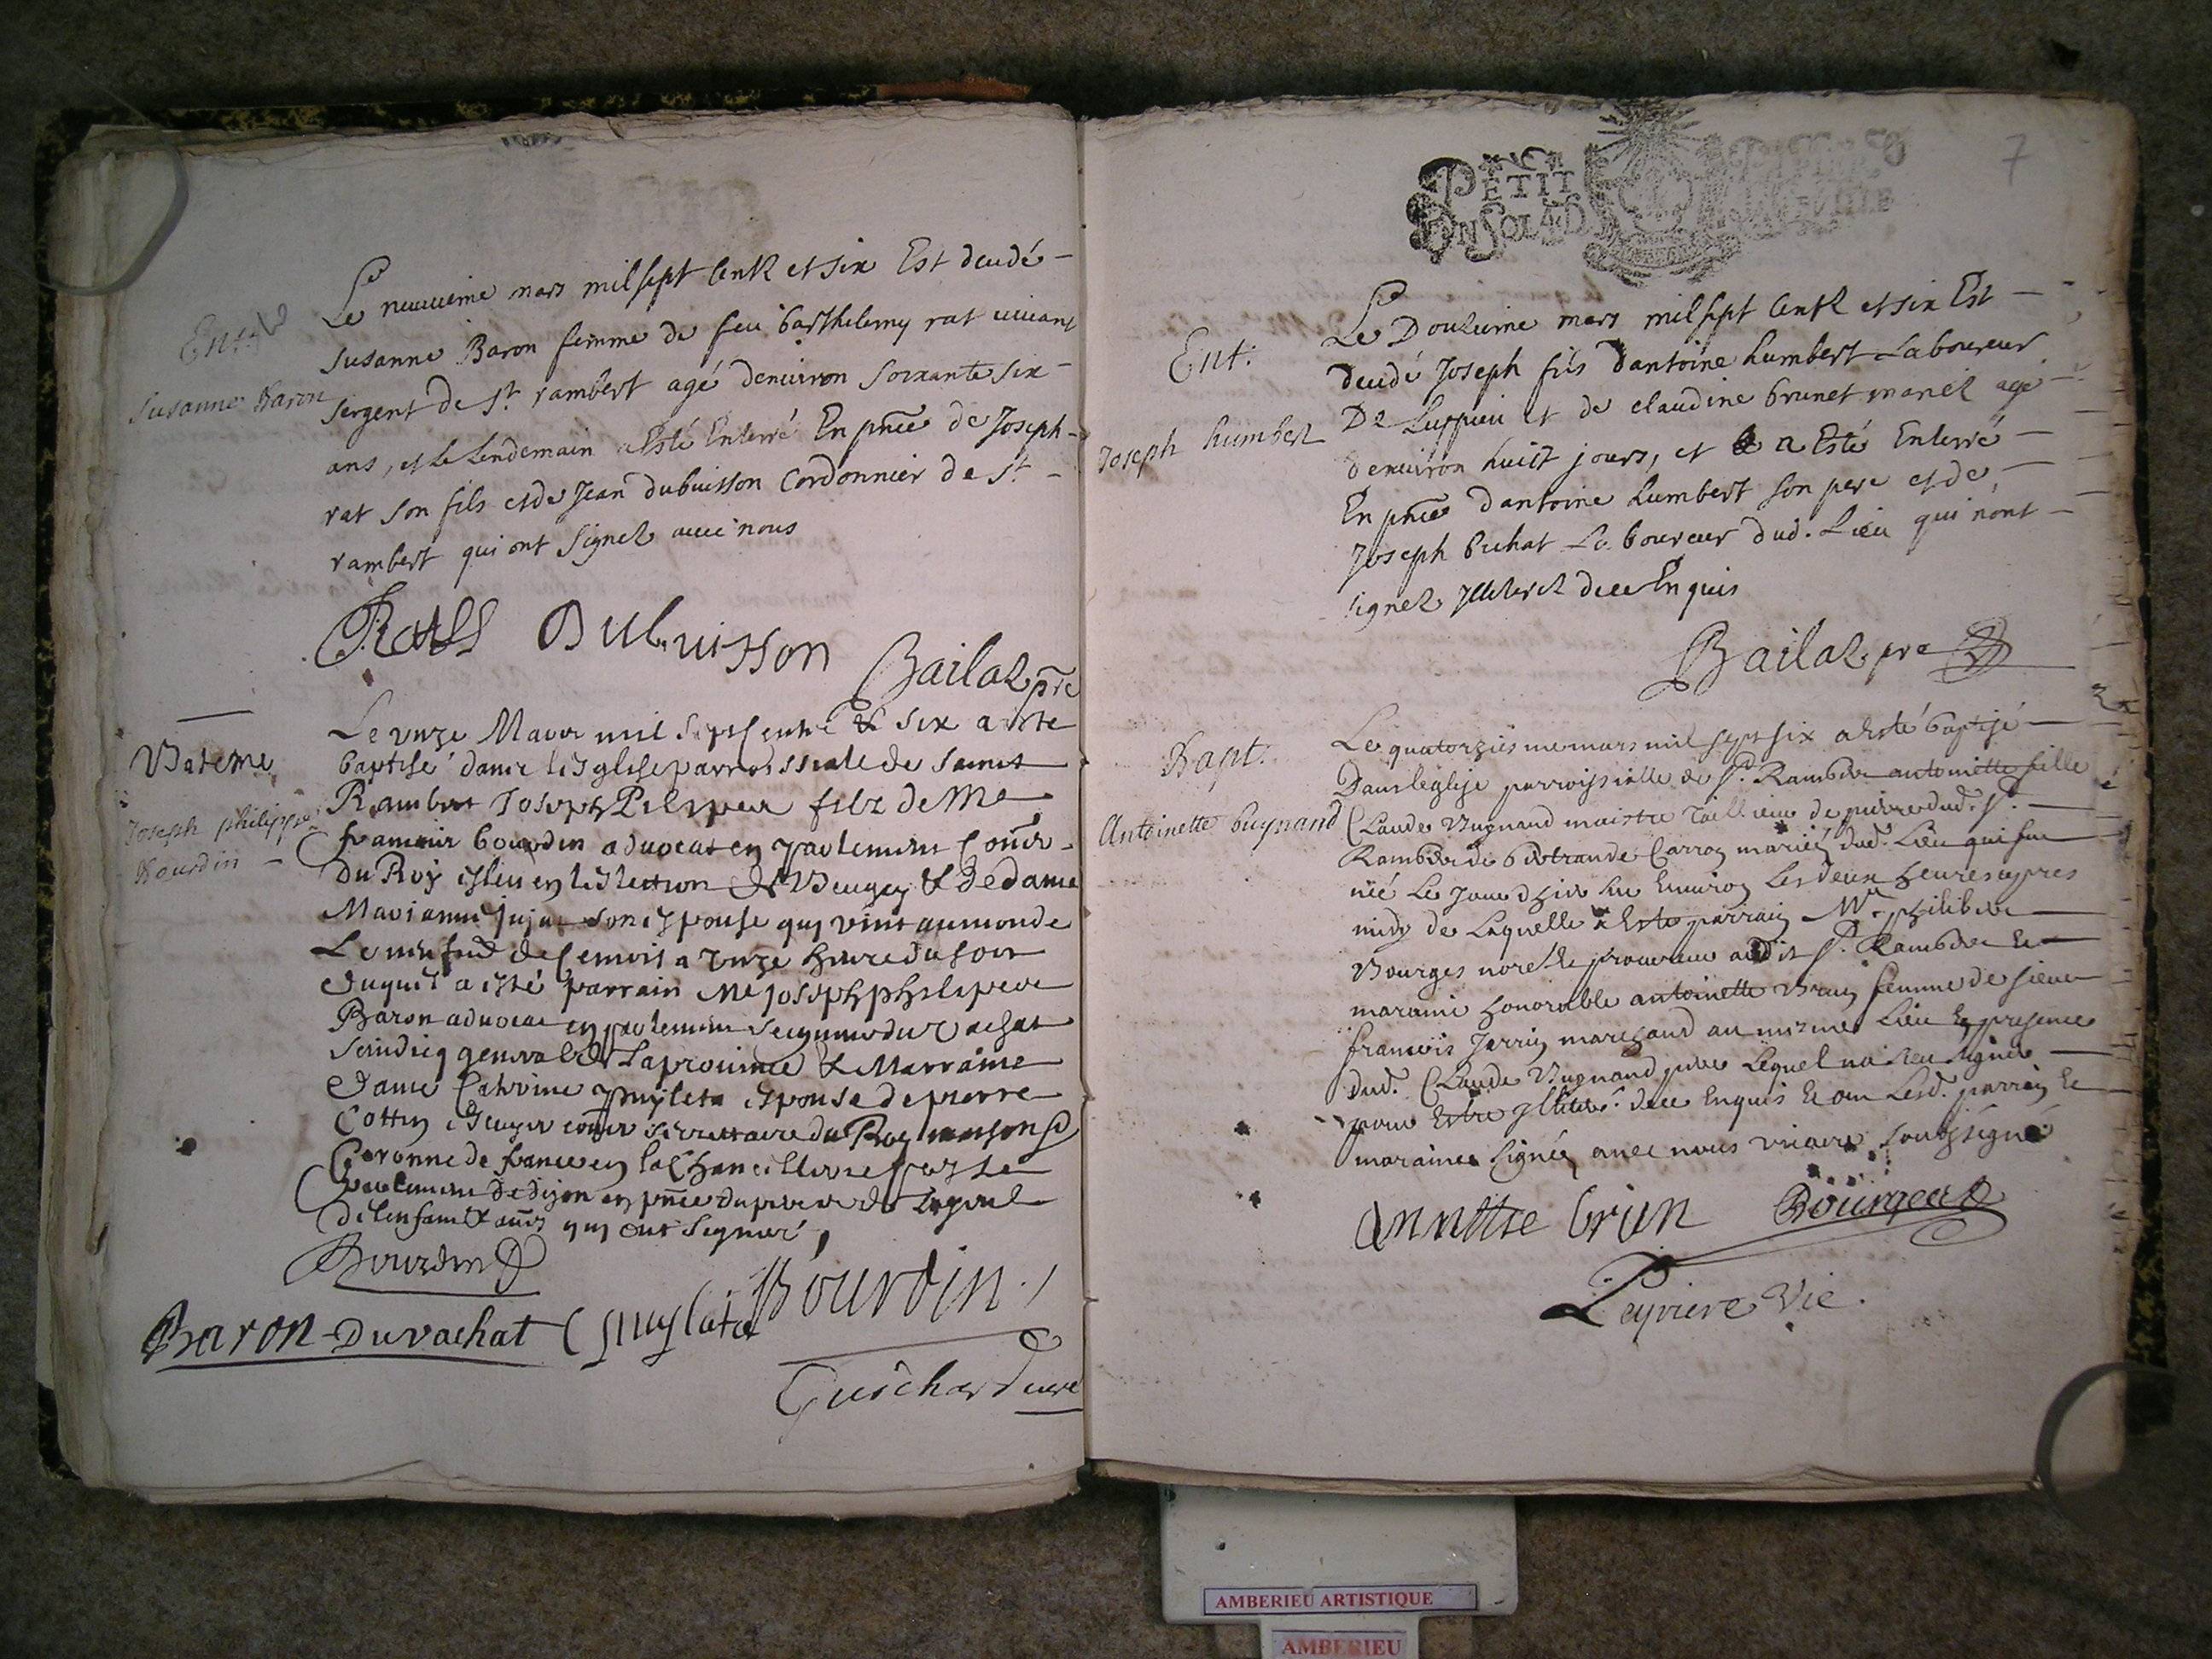 Ent
Susanne Baron
Le neuuieme mars mil sept centz et six Est decedé
susanne Baron femme de feu barthelemy rat viuant
sergent de st rambert agé denuiron soixante six
ans, et le lendemain a Esté Enterré En pnce de Joseph
rat son fils et de Jean dubuisson Cordonnier de st
rambert qui ont signez auec nous
Ratt Dubuisson
Bailaz pre
Bateme
Joseph philippe
Bourdin
Le unze Mars mil sept cents & six a este
baptisé dans lisglise parroissiale de saint
Rambert Joseph filz de Me
francois bourdin aduocat en parlement Coner
du Roy esleu en lislection de Beugey & de dame
Marianne son espouse qui vint au monde
Le de ce mois a unze heure du soir
duquel a isté parrain Me joseph philipe
Baron aduocat en parlement seigneur du vachat
seindicq general de la prouince & Marraine
dame Catherine espouse de pierre
Cottin Escuyer coner secrettaire du Roy maison
Coronne de france en la Chancellerie
parlement de dijon en pnce du pere
qui ont signué,
Bourdin
Baron Duvachat C Bourdin
Guichard curé
7
PETIT
UN SOL 4 D
Ent:
Joseph humbert
Le Douzieme mars mil sept centz et six Est
decedé Joseph fils dantoine humbert Laboureur
De Luppieu et de claudine brunet mariez agé
denuiron huict jours, et a Esté Enterré
En pnce dantoine humbert son pere et de
Joseph Laboureur dud. Lieu qui nont
signez Illiterez de ce Enquis
Bailaz pre
Bapt:
Antoinette buynand
Le quatorziesme mars mil sept six a Esté baptisé
Dans leglise parroissialle de st. Rambert antoinette fille
Claude Bugnand maistre Taillieur de pierre dud. st.
Rambert de Carron mariés dud. Lieu qui fut
née Le Jour dhier sur Enuiron Les deux heures apres
midy de Laquelle a Esté parrain Mr. philibert
Bourges procureur audit st. Rambert &
maraine honorable antoinette Brun femme de sieur
francois Jarrin marchand au mesme Lieu En presence
dud. Claude Bugnand pere Lequel na sceu signer
pour Estre de ce Enquis & on Lesd. parrain &
maraine signés auec nous vicaire soubsigné
Bourges
Leyriere Vic.
AMBERIEU ARTISTIQUE
AMBERIEU